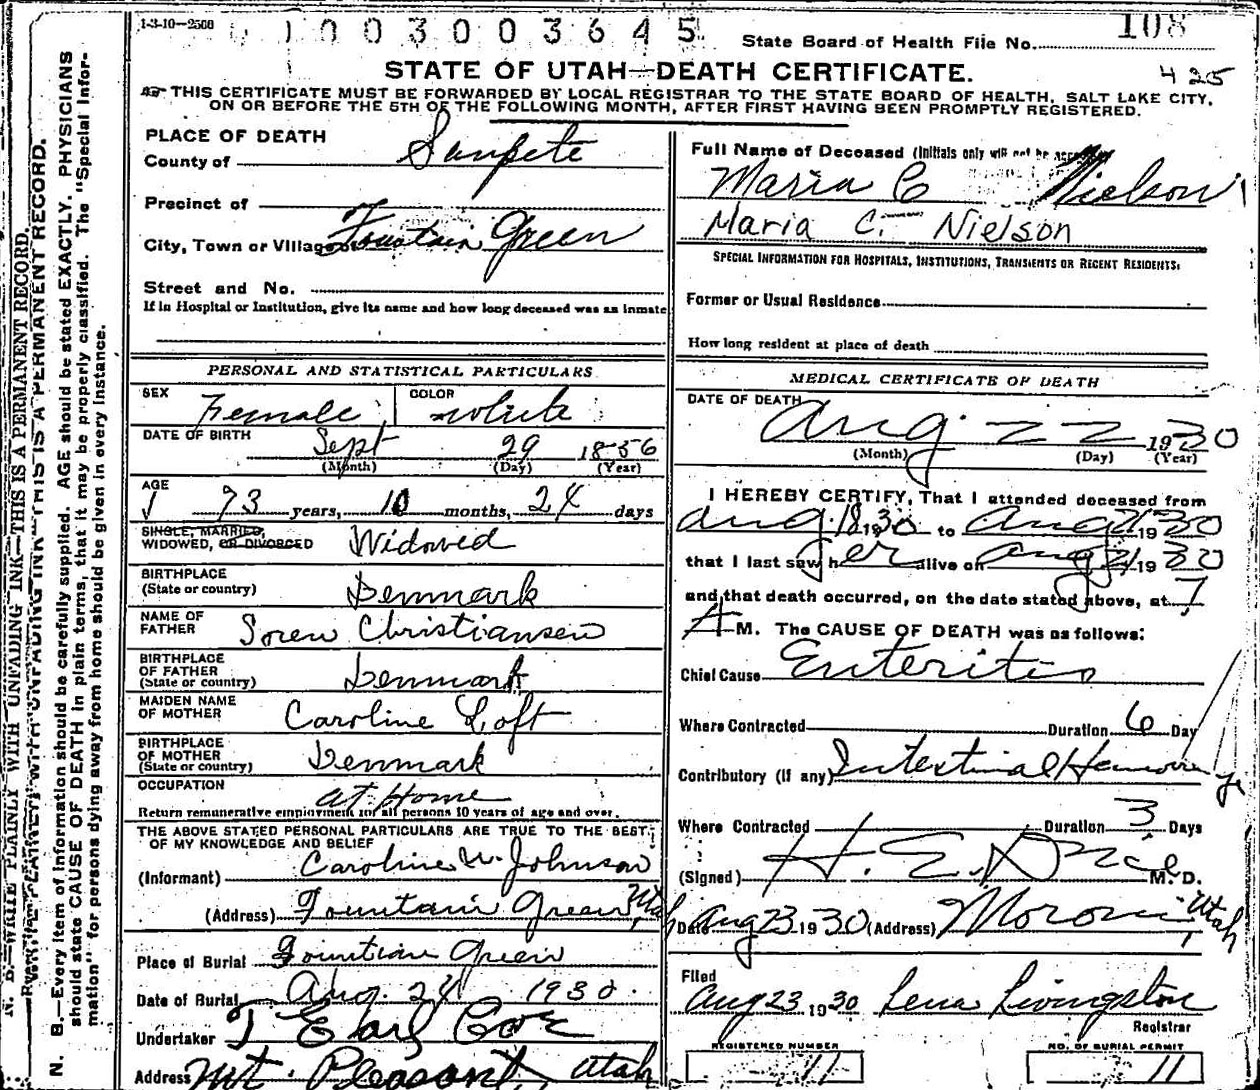 1-3-10-2500
1003003645
State Board of Health File No. 108
STATE OF UTAH—DEATH CERTIFICATE.
425
THIS CERTIFICATE MUST BE FORWARDED BY LOCAL REGISTRAR TO THE STATE BOARD OF HEALTH, SALT LAKE CITY,
ON OR BEFORE THE 5TH OF THE FOLLOWING MONTH, AFTER FIRST HAVING BEEN PROMPTLY REGISTERED.
N. B.—WRITE PLAINLY WITH UNFADING INK—THIS IS A PERMANENT RECORD.
N. B.—Every item of information should be carefully supplied. AGE should be stated EXACTLY. PHYSICIANS
should state CAUSE OF DEATH in plain terms, that it may be properly classified. The "Special Infor-
mation" for persons dying away from home should be given in every instance.
PLACE OF DEATH
County of Sanpete
Precinct of
City, Town or Village Fountain Green
Street and No.
If in Hospital or Institution, give its name and how long deceased was an inmate
PERSONAL AND STATISTICAL PARTICULARS
SEX Female COLOR white
DATE OF BIRTH Sept 29 1856
(Month) (Day) (Year)
AGE 73 years, 10 months, 24 days
SINGLE, MARRIED,
WIDOWED, OR DIVORCED Widowed
BIRTHPLACE
(State or country) Denmark
NAME OF
FATHER Soren Christiansen
BIRTHPLACE
OF FATHER
(State or country) Denmark
MAIDEN NAME
OF MOTHER Caroline Loft
BIRTHPLACE
OF MOTHER
(State or country) Denmark
OCCUPATION at Home
Return remunerative employment for all persons 10 years of age and over.
THE ABOVE STATED PERSONAL PARTICULARS ARE TRUE TO THE BEST
OF MY KNOWLEDGE AND BELIEF
(Informant) Caroline W. Johnson
(Address) Fountain Green Utah
Place of Burial Fountian Green
Date of Burial Aug. 24 1930.
Undertaker T Earl Cox
Address Mt. Pleasant, Utah
Full Name of Deceased (Initials only will not be
Maria C Nielson
Maria C. Nielson
SPECIAL INFORMATION FOR HOSPITALS, INSTITUTIONS, TRANSIENTS OR RECENT RESIDENTS:
Former or Usual Residence
How long resident at place of death
MEDICAL CERTIFICATE OF DEATH
DATE OF DEATH Aug 22 1930
(Month) (Day) (Year)
I HEREBY CERTIFY, That I attended deceased from
Aug. 18 1930 to Aug 21 1930
that I last saw her alive on Aug 21 1930
and that death occurred, on the date stated above, at 7
A M. The CAUSE OF DEATH was as follows:
Chief Cause Enteritis
Where Contracted Duration 6 Day
Contributory (if any) Intestinal
Where Contracted Duration 3 Days
(Signed) H. E. M. D.
Date Aug 23 1930 (Address) Moroni, Utah
Filed
Aug 23 1930 Lena Livingston
Registrar
REGISTERED NUMBER 11
NO. OF BURIAL PERMIT 11